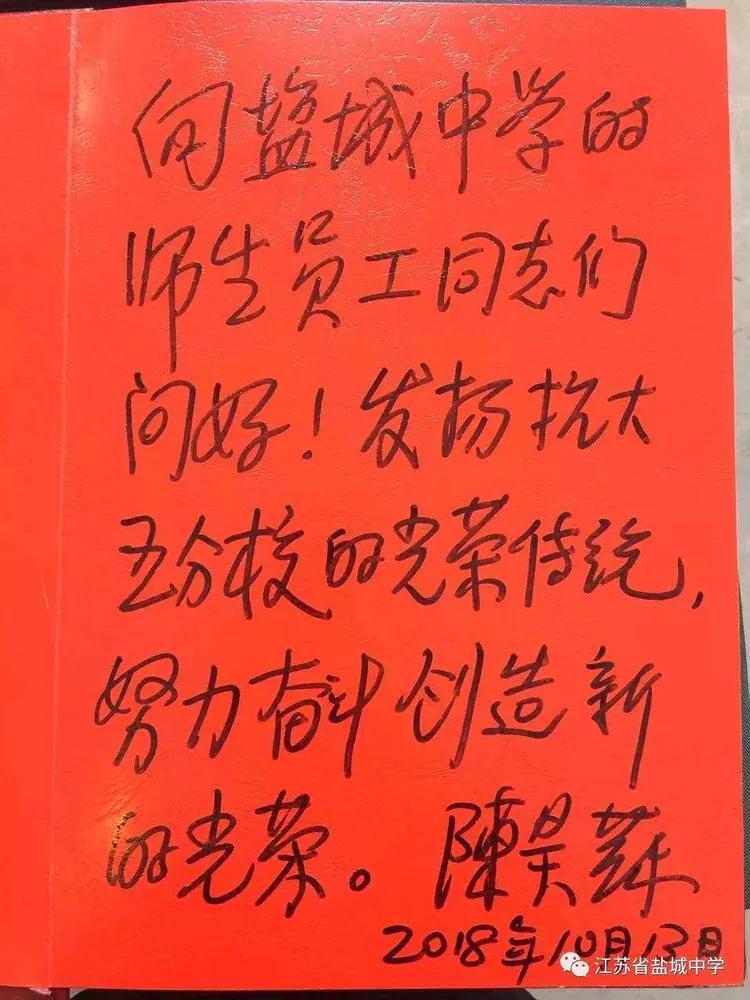 向盐城中学的
师生员工同志们
问好！发扬抗大
五分校的光荣传统，
努力奋斗创造新
的光荣。陳昊蘇
2018年10月13日
江苏省盐城中学